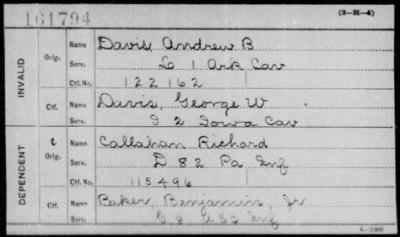 161794
(3-H-4)
INVALID
Orig.
Name Davis, Andrew B
Serv. L 1 Ark Cav
Ctf. No. 122162
Ctf. Name Davis, George W.
Serv. I 2 Iowa Cav
DEPENDENT
Orig.
Name Callahan Richard
Serv. D 82 Pa Inf
Ctf. No. 115496
Ctf. Name Baker, Benjamin, Jr
Serv.